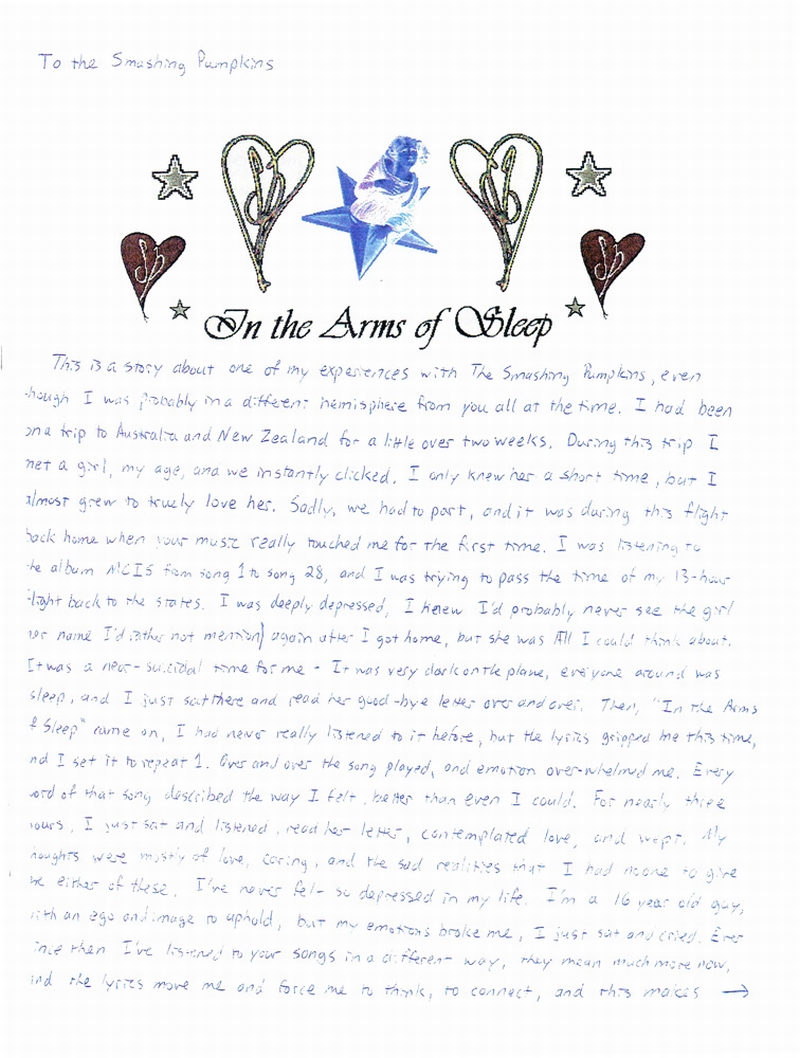 To the Smashing Pumpkins
In the Arms of Sleep
This is a story about one of my experiences with The Smashing Pumpkins, even
though I was probably in a different hemisphere from you all at the time. I had been
on a trip to Australia and New Zealand for a little over two weeks. During this trip I
met a girl, my age, and we instantly clicked. I only knew her a short time, but I
almost grew to truely love her. Sadly, we had to part, and it was during this flight
back home when your music really touched me for the first time. I was listening to
the album MCIS from song 1 to song 28, and I was trying to pass the time of my 13-hour
flight back to the states. I was deeply depressed, I knew I'd probably never see the girl
(her name I'd rather not mention) again after I got home, but she was All I could think about.
It was a near-suicidal time for me - It was very dark on the plane, everyone around was
sleep, and I just sat there and read her good-bye letter over and over. Then, "In the Arms
of Sleep" came on, I had never really listened to it before, but the lyrics gripped me this time,
and I set it to repeat 1. Over and over the song played, and emotion over-whelmed me. Every
word of that song described the way I felt, better than even I could. For nearly three
hours, I just sat and listened, read her letter, contemplated love, and wept. My
thoughts were mostly of love, caring, and the sad realities that I had noone to give
me either of these. I've never felt so depressed in my life. I'm a 16 year old guy,
with an ego and image to uphold, but my emotions broke me, I just sat and cried. Ever
since then I've listened to your songs in a different way, they mean much more now,
and the lyrics move me and force me to think, to connect, and this makes →